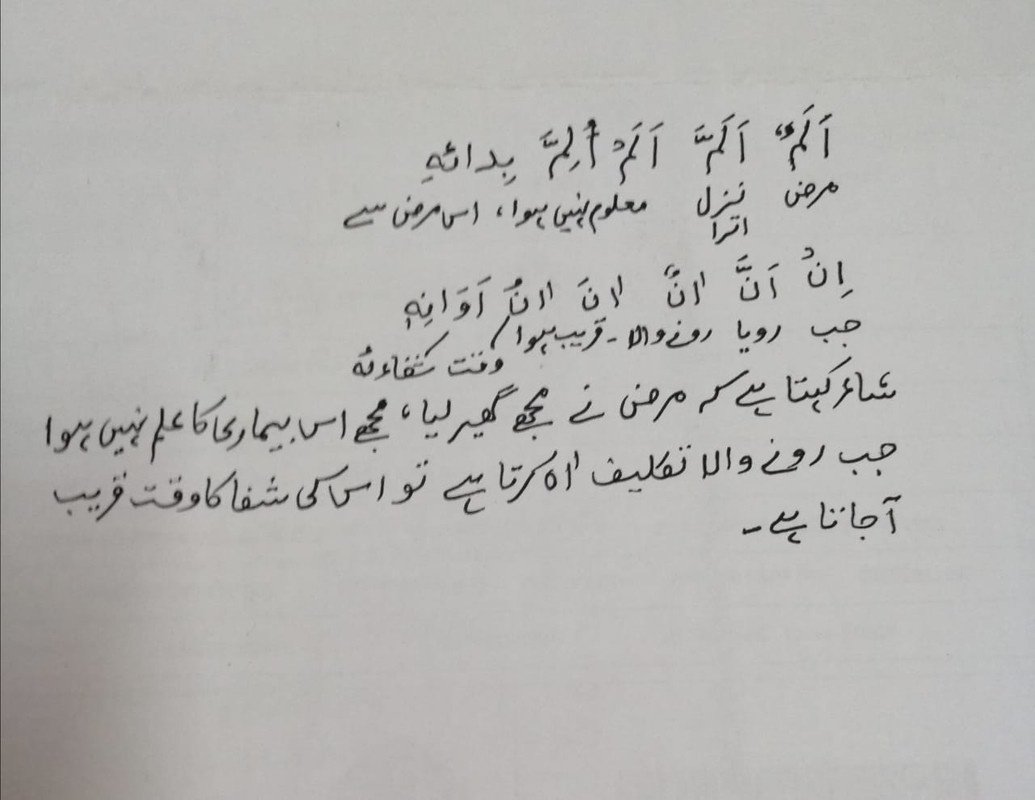 اَلَمٌ اَلَمَّ اَلَمْ اُلِمَّ بِدائہِ
مرض نزل معلوم نہیں ہوا، اس مرض سے
اترا
اِنْ اَنَّ اٰنٌ اٰنَ اٰنُ اَوَانِہٖ
جب رویا رونے والا۔ قریب ہوا
وقت شفاءئہ
شاعر کہتا ہے کہ مرض نے مجھے گھیر لیا، مجھے اس بیماری کا علم نہیں ہوا
جب رونے والا تکلیف اہ کرتا ہے تو اس کی شفا کا وقت قریب
آجاتا ہے۔